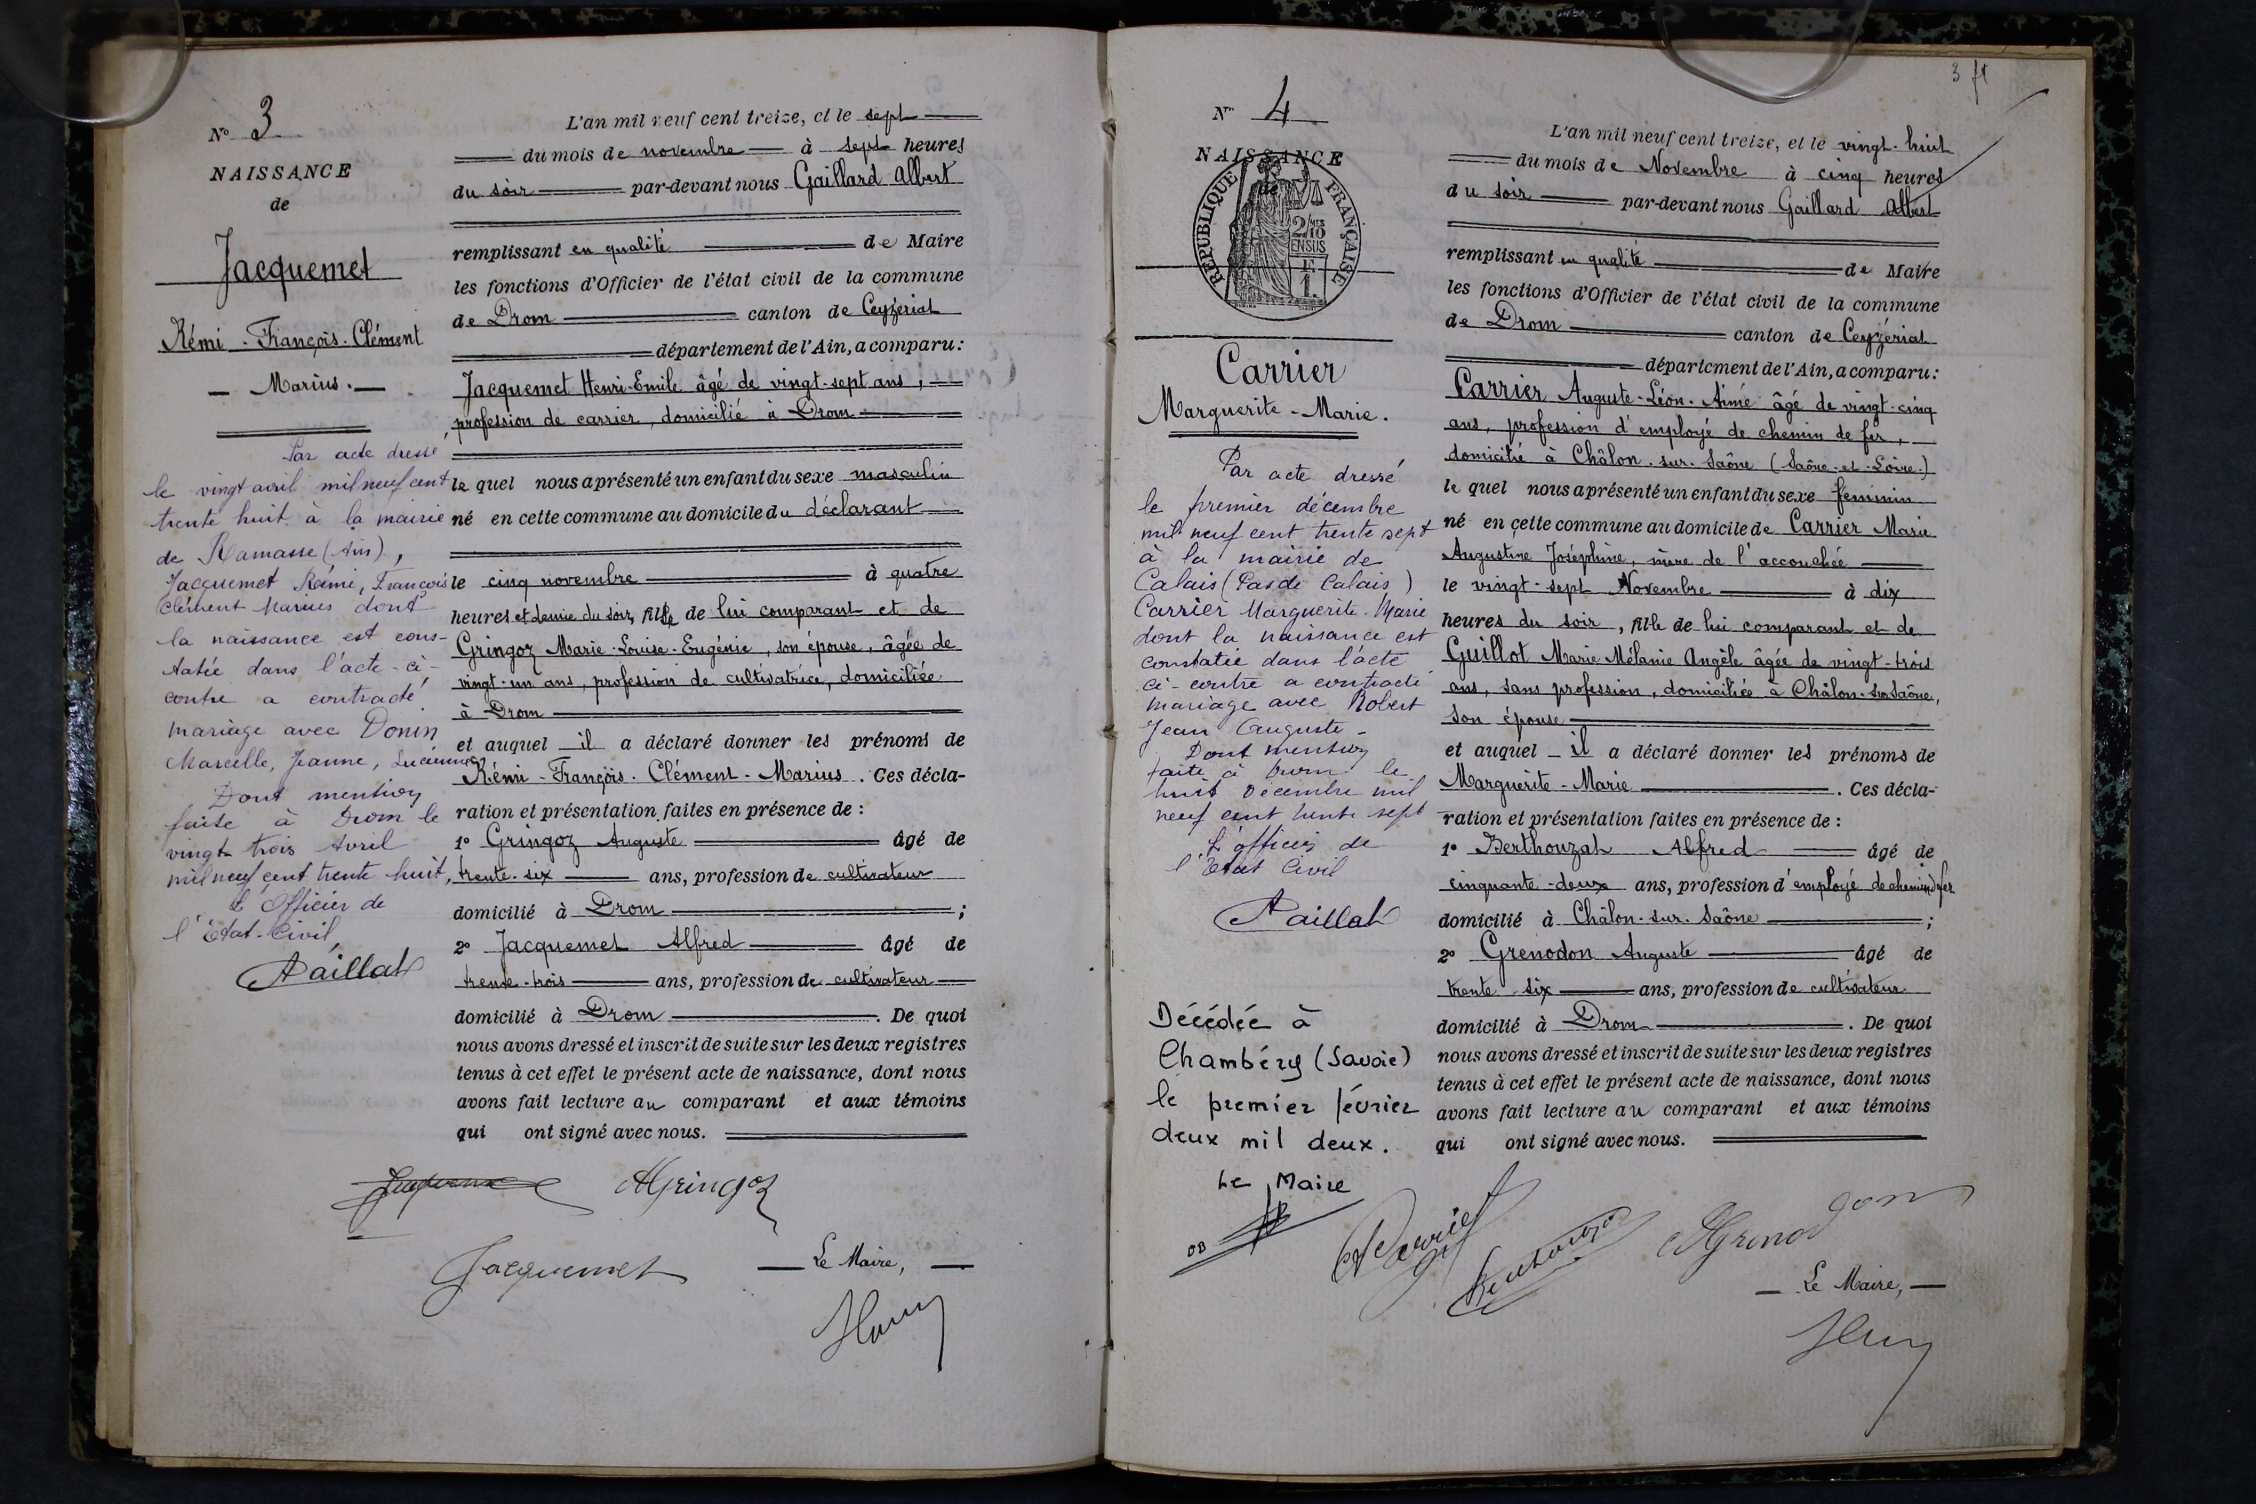 N° 3
NAISSANCE
de
Jacquemet
Rémi - François - Clément
- Marius. -
Par acte dressé
le vingt avril mil neuf cent
trente huit à la mairie
de Ramasse (Ain),
Jacquemet Rémi, François
Clément Marius dont
la naissance est cons-
tatée dans l'acte ci-
contre a contracté
mariage avec Donin
Marcelle, Jeanne, Lucienne
Dont mention
faite à Drom le
vingt trois Avril
mil neuf cent trente huit,
L'Officier de
l'Etat-Civil,
L'an mil neuf cent treize, et le sept
du mois de novembre à sept heures
du soir par-devant nous Gaillard Albert
remplissant en qualité de Maire
les fonctions d'Officier de l'état civil de la commune
de Drom canton de Ceyzériat
département de l'Ain, a comparu :
Jacquemet Henri-Emile âgé de vingt-sept ans,
profession de carrier, domicilié à Drom
le quel nous a présenté un enfant du sexe masculin
né en cette commune au domicile du déclarant
le cinq novembre à quatre
heures et demie du soir, fils de lui comparant et de
Gringoz Marie-Louise-Eugénie, son épouse, âgée de
vingt-un ans, profession de cultivatrice, domiciliée
à Drom
et auquel il a déclaré donner les prénoms de
Rémi - François - Clément - Marius. Ces décla-
ration et présentation faites en présence de :
1° Gringoz Auguste âgé de
trente-six ans, profession de cultivateur
domicilié à Drom ;
2° Jacquemet Alfred âgé de
trente-trois ans, profession de cultivateur
domicilié à Drom . De quoi
nous avons dressé et inscrit de suite sur les deux registres
tenus à cet effet le présent acte de naissance, dont nous
avons fait lecture au comparant et aux témoins
qui ont signé avec nous.
AGringoz
Jacquemet
Le Maire,
3 ft
N° 4
NAISSANCE
de
RÉPUBLIQUE FRANÇAISE
2/10 MES
EN SUS
F.
1.
Carrier
Marguerite - Marie.
Par acte dressé
le premier décembre
mil neuf cent trente sept
à la mairie de
Calais (Pas de Calais)
Carrier Marguerite-Marie
dont la naissance est
constatée dans l'acte
ci-contre a contracté
mariage avec Robert
Jean Auguste -
Dont mention
faite à Drom le
huit Décembre mil
neuf cent trente sept
L'officier de
l'Etat Civil
Décédée à
Chambéry (Savoie)
le premier février
deux mil deux.
Le Maire
L'an mil neuf cent treize, et le vingt-huit
du mois de Novembre à cinq heures
du soir par-devant nous Gaillard Albert
remplissant en qualité de Maire
les fonctions d'Officier de l'état civil de la commune
de Drom canton de Ceyzériat
département de l'Ain, a comparu :
Carrier Auguste-Léon-Aimé âgé de vingt-cinq
ans, profession d'employé de chemin de fer,
domicilié à Châlon-sur-Saône (Saône-et-Loire.)
le quel nous a présenté un enfant du sexe féminin
né en cette commune au domicile de Carrier Marie
Augustine Joséphine, mère de l'accouchée
le vingt-sept Novembre à dix
heures du soir, fille de lui comparant et de
Guillot Marie Mélanie Angèle âgée de vingt-trois
ans, sans profession, domiciliée à Châlon-sur-Saône,
son épouse
et auquel il a déclaré donner les prénoms de
Marguerite-Marie . Ces décla-
ration et présentation faites en présence de :
1° Berthouzat Alfred âgé de
cinquante-deux ans, profession d'employé de chemin de fer
domicilié à Châlon-sur-Saône ;
2° Grenodon Auguste âgé de
trente six ans, profession de cultivateur
domicilié à Drom . De quoi
nous avons dressé et inscrit de suite sur les deux registres
tenus à cet effet le présent acte de naissance, dont nous
avons fait lecture au comparant et aux témoins
qui ont signé avec nous.
AGrenodon
Le Maire,